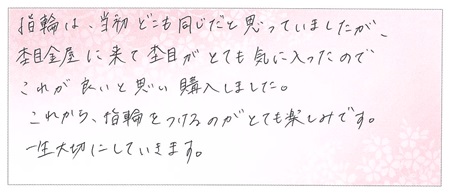 指輪は、当初どこも同じだと思っていましたが、
杢目金屋に来て杢目がとても気に入ったので
これが良いと思い購入しました。
これから、指輪をつけるのがとても楽しみです。
一生大切にしていきます。